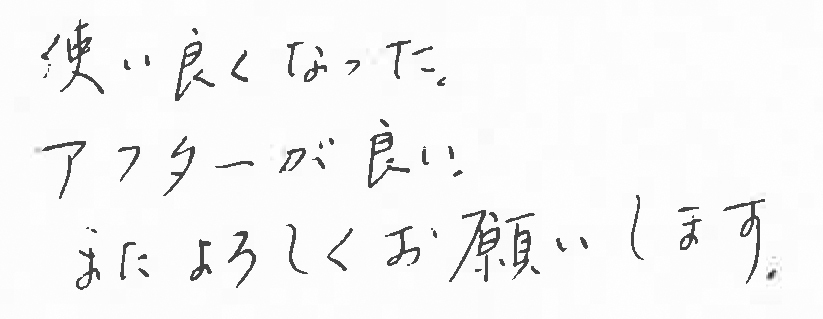 使い良くなった。
アフターが良い。
またよろしくお願いします。